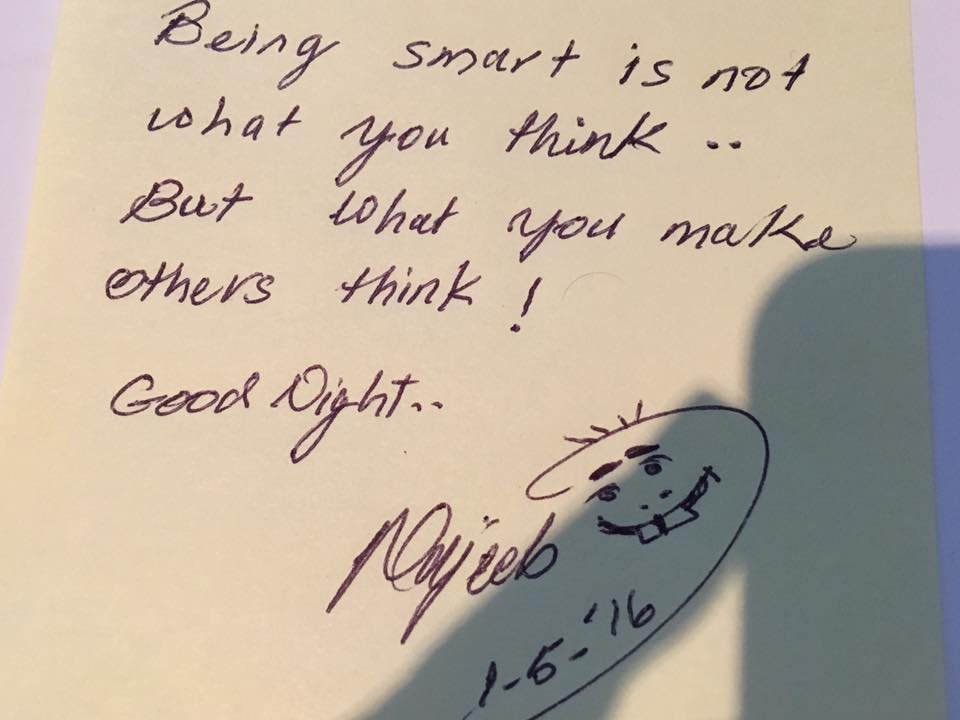 Being smart is not
what you think ..
But what you make
others think !
Good Night..
Najeeb
1-5-'16